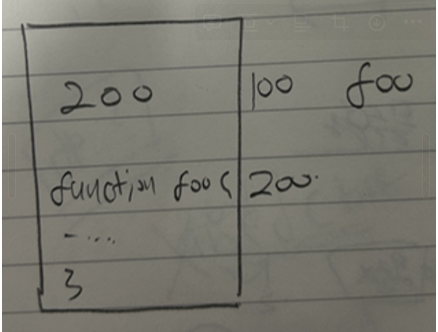 200 100 foo
function foo { 200.
- ....
}